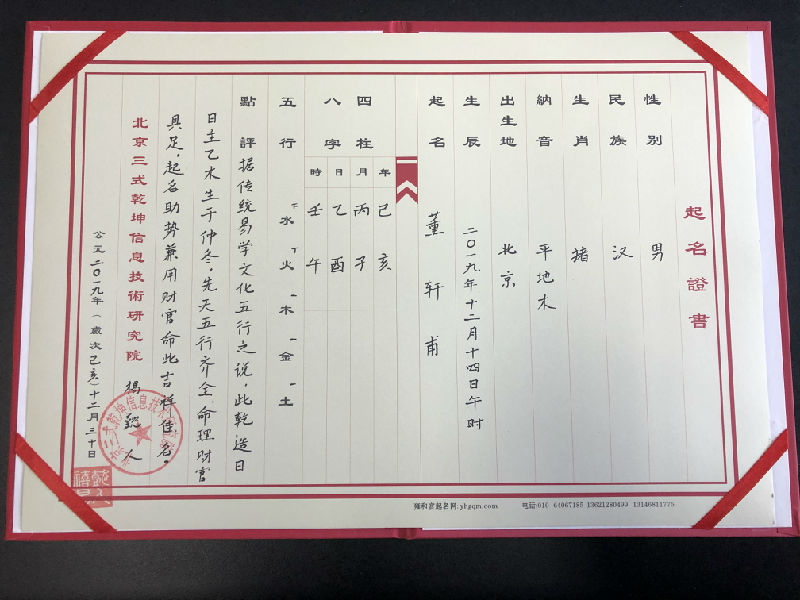 起名證書
性别 男
民族 汉
生肖 猪
納音 平地木
出生地 北京
生辰 二〇一九年十二月十四日午时
起名 董轩甫
四柱 年 月 日 時
八字 己亥 丙子 乙酉 壬午
五行 二水 二火 一木 一金 一土
點評 據传统易学文化五行之说，此乾造日
日主乙木生于仲冬，先天五行齐全，命理财官
具足，起名助势兼用财官命此吉祥佳名。
北京三式乾坤信息技術研究院 楊懿人
公元二〇一九年（歲次己亥）十二月三十日
雍和宫起名网:yhgqm.com 电话:010 64067185 13621280499 13146811775